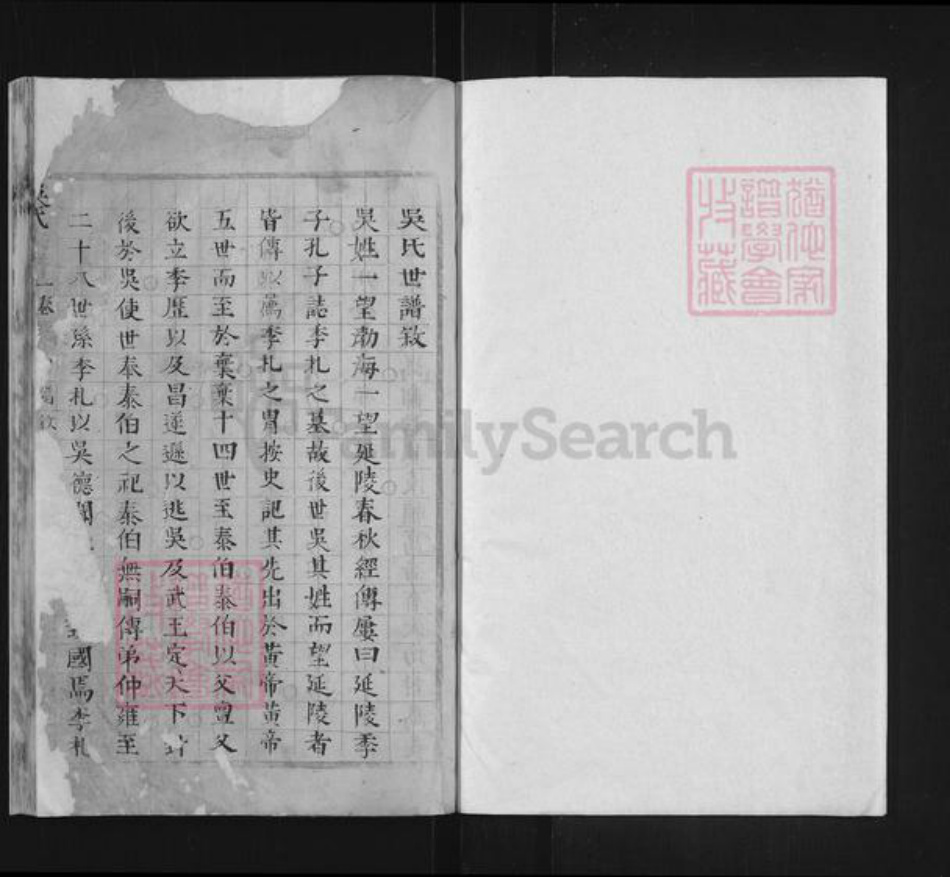 猶他家
譜學會
收藏
吳氏世譜敘
吳姓一望渤海一望延陵春秋經傳屢曰延陵季
子孔子誌季札之墓故後世吳其姓而望延陵者
皆傳以為季札之冑按史記其先出於黃帝黃帝
五世而至於棄棄十四世至泰伯泰伯以父亶父
欲立季歷以及昌遂遜以逃吳及武王定天下封
後於吳使世奉泰伯之祀泰伯無嗣傳弟仲雍至
二十八世孫季札以吳德
國焉季札
吳氏
卷
FamilySearch